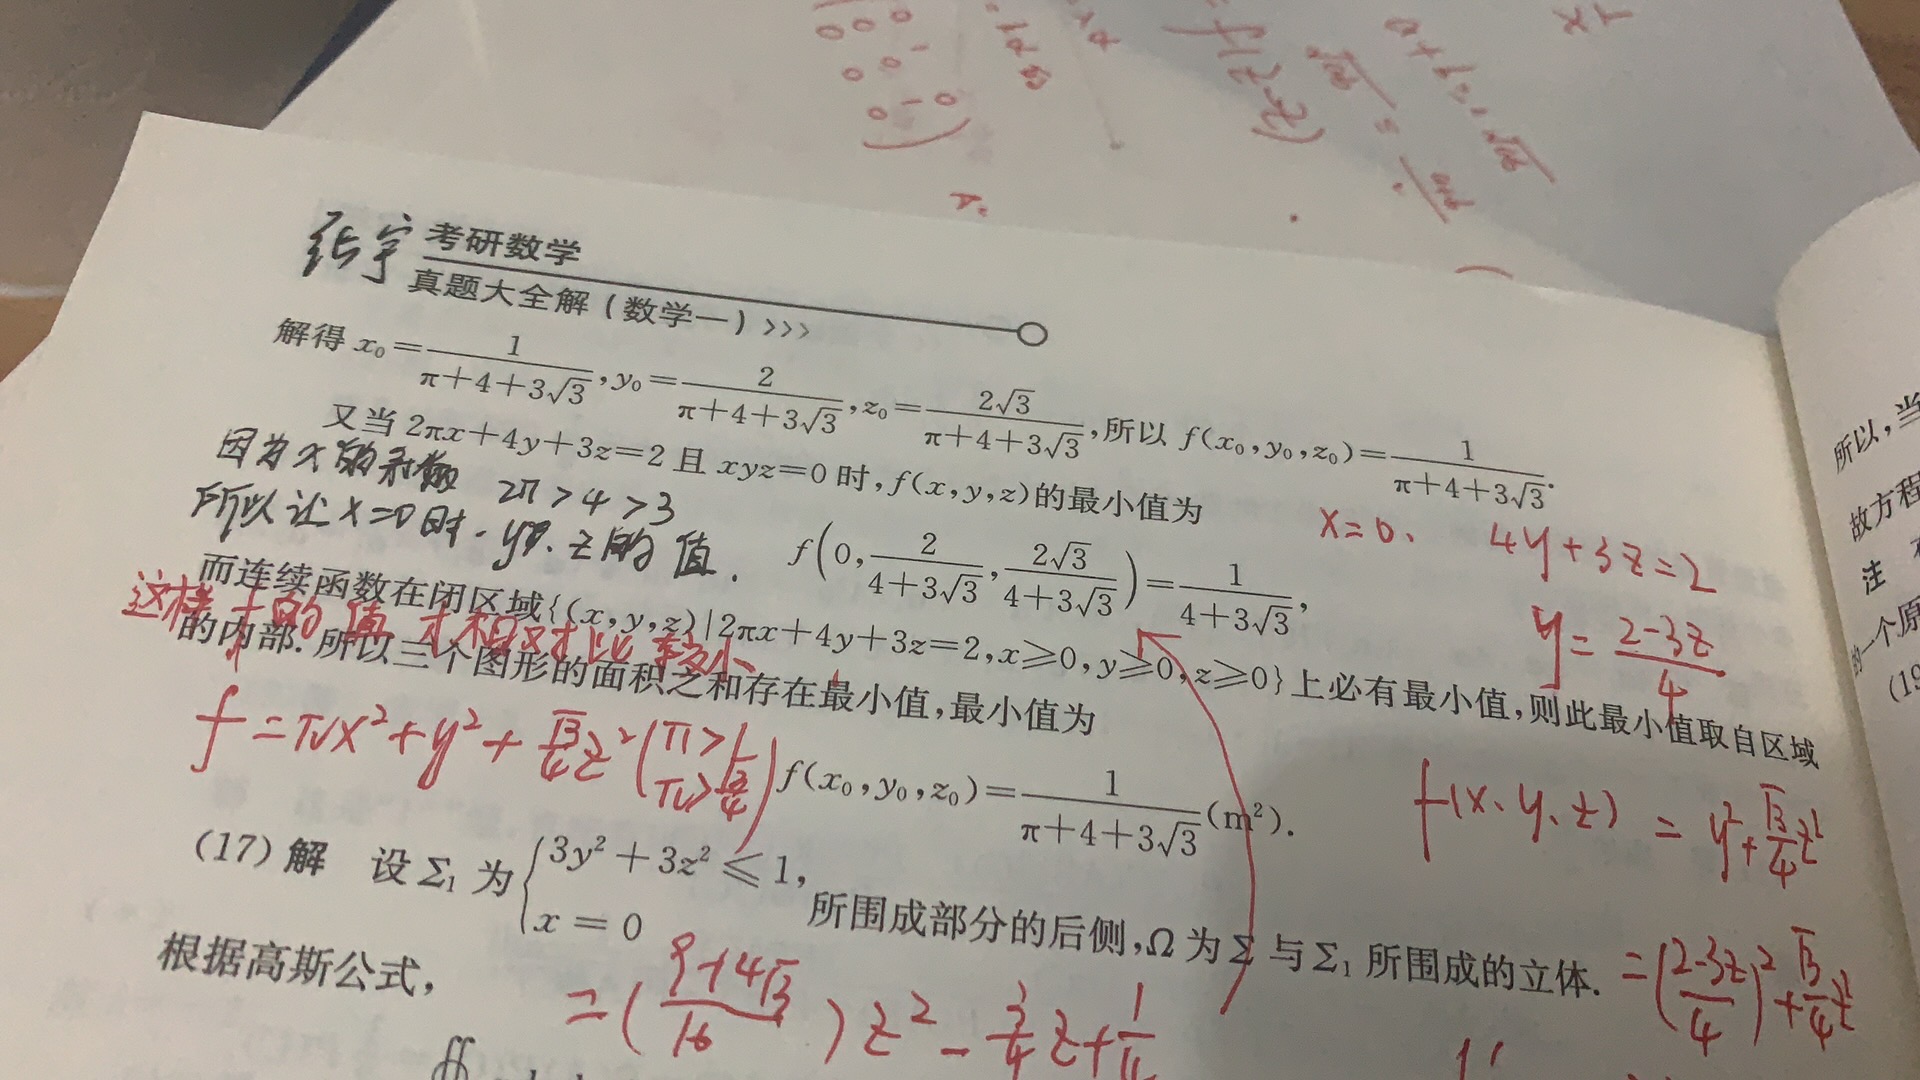 张宇 考研数学
真题大全解(数学一)>>>
解得 x₀=1/(π+4+3√3), y₀=2/(π+4+3√3), z₀=2√3/(π+4+3√3), 所以 f(x₀,y₀,z₀)=1/(π+4+3√3).
又当 2πx+4y+3z=2 且 xyz=0 时, f(x,y,z)的最小值为
因为 x 的系数 2π>4>3
所以 让 x=0时. y. z 的 值.
f(0, 2/(4+3√3), 2√3/(4+3√3))=1/(4+3√3),
x=0. 4y+3z=2
y=(2-3z)/4
而连续函数在闭区域{(x,y,z)|2πx+4y+3z=2,x≥0,y≥0,z≥0}上必有最小值,则此最小值取自区域
这样 f 的 值 才相对比较小
的内部.所以三个图形的面积之和存在最小值,最小值为
f=πx²+y²+√3/4z² (π>1 π>√3/4)
f(x₀,y₀,z₀)=1/(π+4+3√3)(m²).
f(x、y、z) = y²+√3/4z²
(17)解 设 Σ₁ 为{3y²+3z²≤1, x=0 所围成部分的后侧,Ω 为 Σ 与 Σ₁ 所围成的立体.
=((2-3z)/4)²+√3/4z²
根据高斯公式,
=((9+4√3)/16)z²-3/4z+1/4
∯
所以,当
故方程
注
的一个原
(19